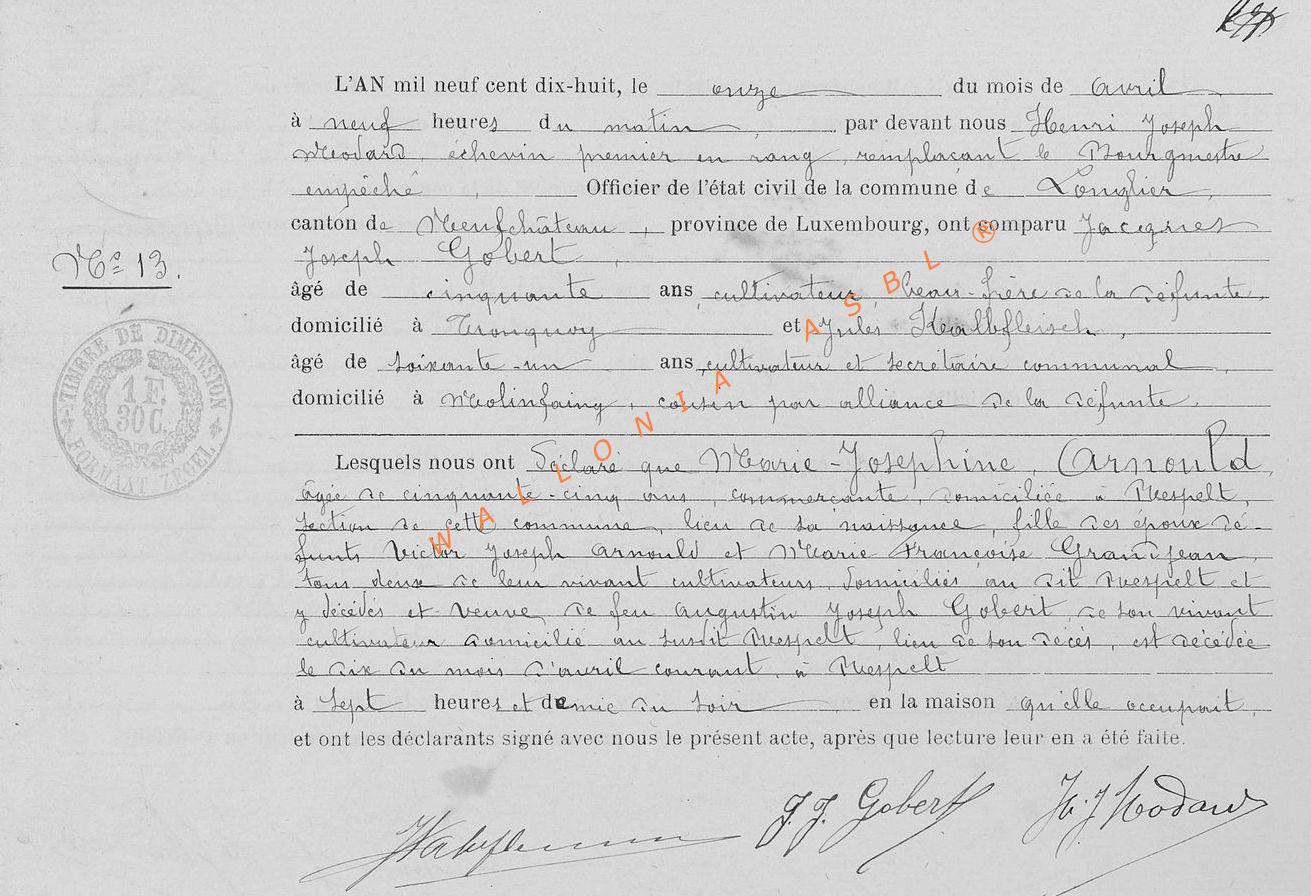 L'AN mil neuf cent dix-huit, le onze du mois de avril
à neuf heures du matin, par devant nous Henri Joseph
Modard, échevin premier en rang, remplaçant le Bourgmestre
empêché, Officier de l'état civil de la commune de Longlier,
canton de Neufchâteau, province de Luxembourg, ont comparu Jacques
Joseph Gobert,
N° 13.
âgé de cinquante ans, cultivateur, beau-frère de la défunte,
domicilié à Tronquoy et Jules Kalbfleisch,
âgé de soixante-un ans, cultivateur et secrétaire communal
domicilié à Molinfaing, cousin par alliance de la défunte.
TIMBRE DE DIMENSION
1 F.
30 C.
FORMAAT ZEGEL
Lesquels nous ont déclaré que Marie-Josephine Arnould,
âgée de cinquante-cinq ans, commerçante, domiciliée à Respelt,
section de cette commune, lieu de sa naissance, fille des époux dé-
funts Victor Joseph Arnould et Marie Françoise Grandjean,
tous deux de leur vivant cultivateurs, domiciliés au dit Respelt et
y décédés et veuve de feu Augustin Joseph Gobert, de son vivant
cultivateur domicilié au susdit Respelt, lieu de son décès, est décédée
le dix du mois d'avril courant, à Respelt
à sept heures et demie du soir, en la maison qu'elle occupait,
et ont les déclarants signé avec nous le présent acte, après que lecture leur en a été faite.
J. J. Gobert H. J. Modard
WALLONIA ASBL ®